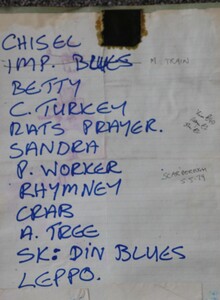 CHISEL
IMP. BLUES
M. TRAIN
BETTY
C. TURKEY
RATS PRAYER.
SANDRA
P. WORKER
SCARBOROUGH
RHYMNEY
CRAB
A. TREE
SK: DIN BLUES
LEPPO.